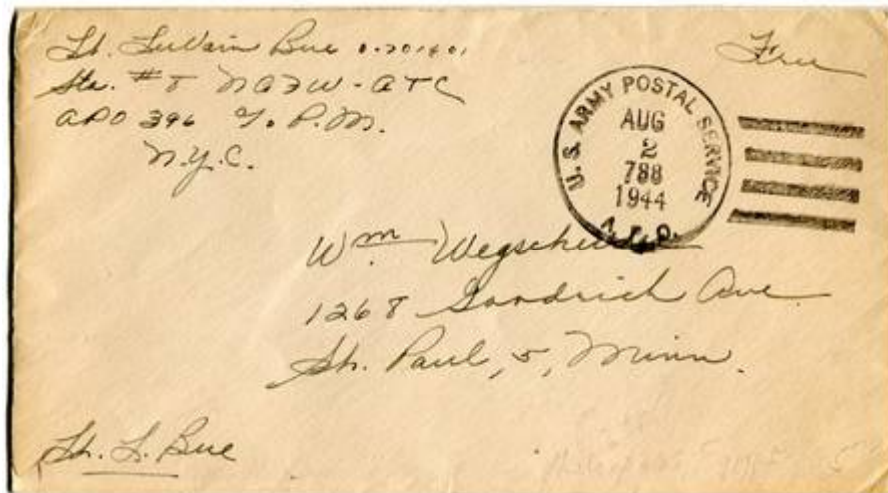 Lt. LuVain Bue 0-701601
Sta. #8 NAFW-ATC
APO 396 % P.M.
N.Y.C.
Free
U.S. ARMY POSTAL SERVICE
AUG
2
788
1944
A.P.O.
Wm
1268 Goodrich Ave.
St. Paul, 5, Minn.
Lt. L. Bue